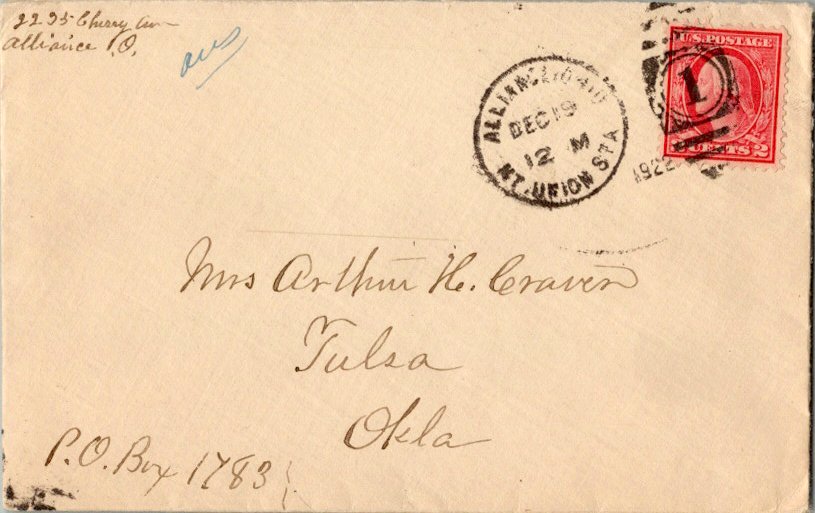 2235 Cherry Ave
Alliance, O.
ans
ALLIANCE, OHIO
DEC 19
12 M
MT. UNION STA
1922
1
U.S. POSTAGE
2 CENTS 2
Mrs Arthur H. Craven
Tulsa
Okla
P.O. Box 1783